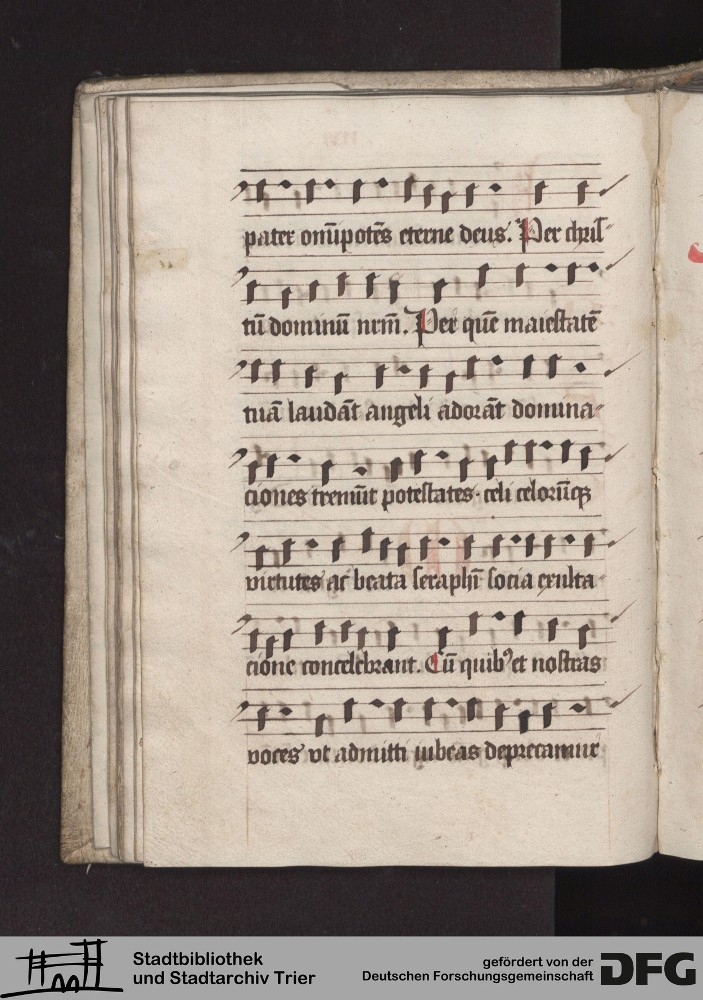 pater om̄ipotēs eterne deus. Per chris-
tū dominū nrm̄. Per quē maiestatē
tuā laudāt angeli adorāt domina-
ciones tremūt potestates. celi celorūqꝫ
virtutes ac beata seraphī socia exulta-
cione concelebrant. Cū quibꝰ et nostras
voces vt admitti iubeas deprecamur
Stadtbibliothek
und Stadtarchiv Trier
gefördert von der
Deutschen Forschungsgemeinschaft
DFG